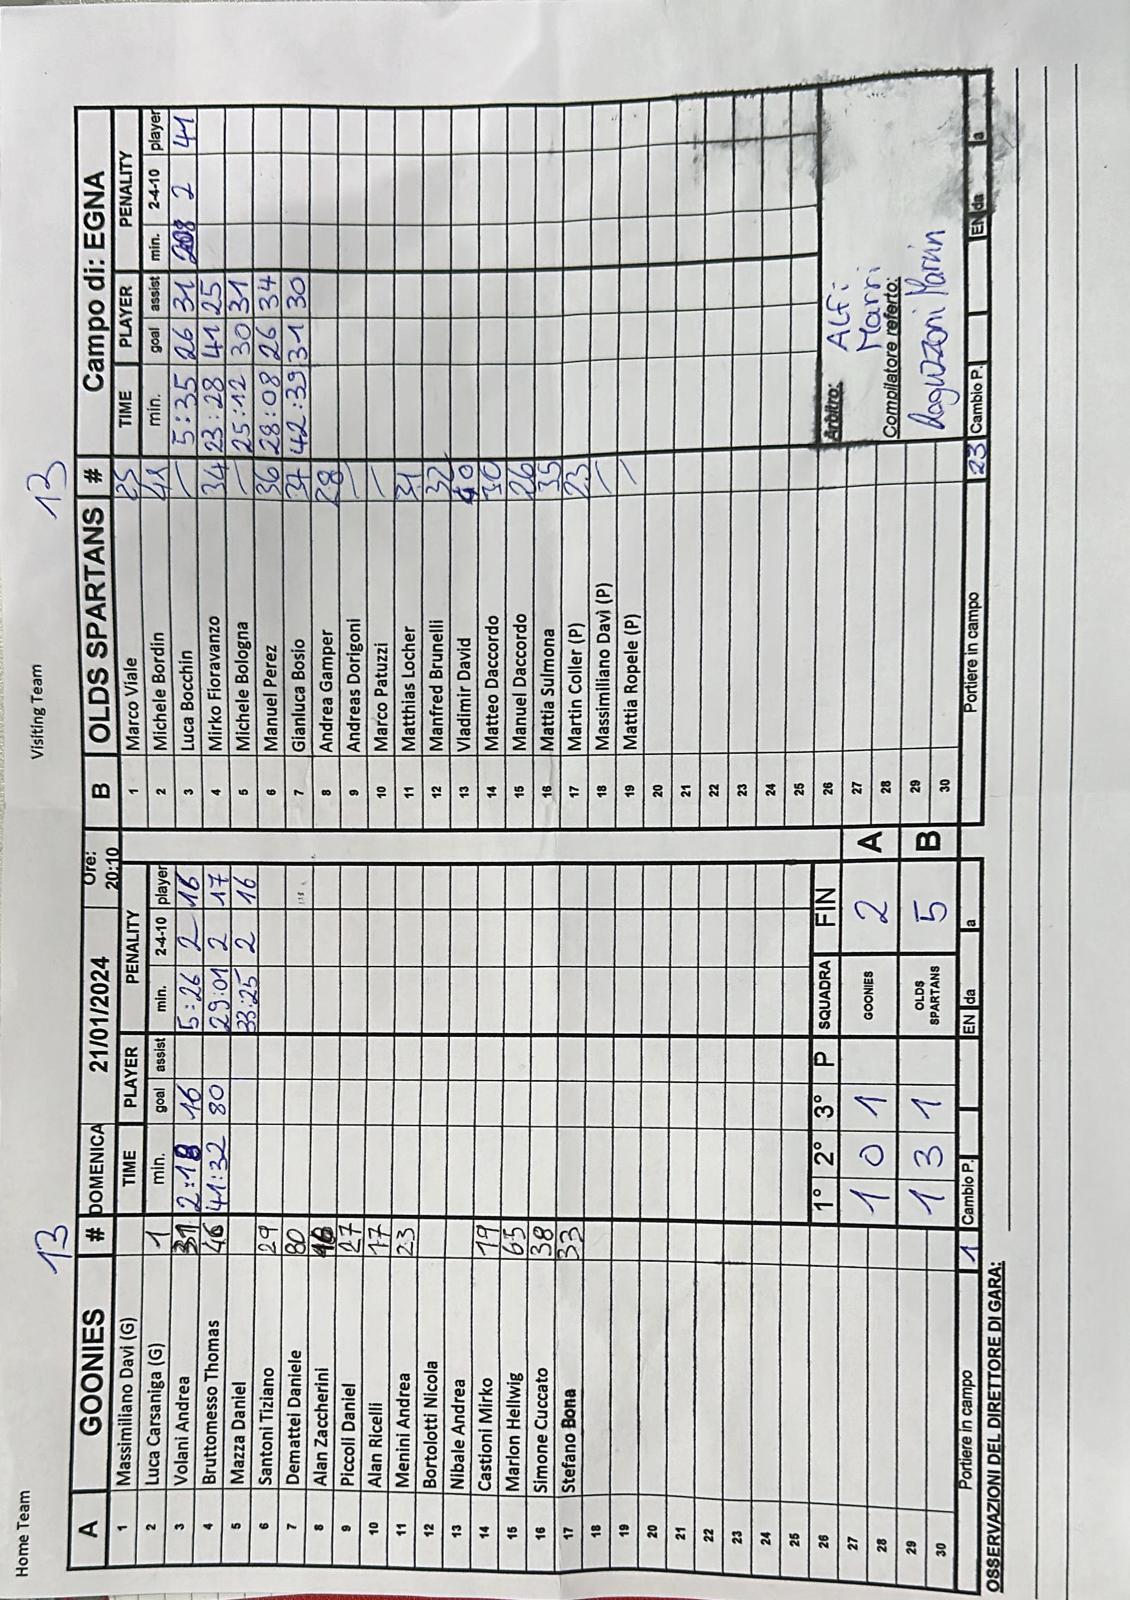 Home Team 13 Visiting Team 13
A GOONIES # DOMENICA 21/01/2024 Ore: 20:10 B OLDS SPARTANS # Campo di: EGNA
TIME PLAYER PENALITY TIME PLAYER PENALITY
min. goal assist min. 2-4-10 player min. goal assist min. 2-4-10 player
1 Massimiliano Davi (G) 1 Marco Viale
2 Luca Carsaniga (G) 1 2 Michele Bordin
3 Volani Andrea 31 2:18 16 5:26 2 16 3 Luca Bocchin / 5:35 26 31 2 41
4 Bruttomesso Thomas 46 41:32 80 29:01 2 17 4 Mirko Fioravanzo 34 23:28 41 25
5 Mazza Daniel 33:25 2 16 5 Michele Bologna / 25:12 30 31
6 Santoni Tiziano 29 6 Manuel Perez 36 28:08 26 34
7 Demattei Daniele 80 7 Gianluca Bosio 42:39 31 30
8 Alan Zaccherini 8 Andrea Gamper 28
9 Piccoli Daniel 27 9 Andreas Dorigoni /
10 Alan Ricelli 17 10 Marco Patuzzi /
11 Menini Andrea 23 11 Matthias Locher 31
12 Bortolotti Nicola 12 Manfred Brunelli 32
13 Nibale Andrea 13 Vladimir David
14 Castioni Mirko 19 14 Matteo Daccordo 30
15 Marlon Hellwig 65 15 Manuel Daccordo 26
16 Simone Cuccato 38 16 Mattia Sulmona 35
17 Stefano Bona 33 17 Martin Coller (P) 23
18 18 Massimiliano Davì (P) /
19 19 Mattia Ropele (P) /
20 20
21 21
22 22
23 23
24 24
25 25
26 1° 2° 3° P SQUADRA FIN 26 Arbitro: ALFi
27 1 0 1 GOONIES 2 A 27 Marri
28 28 Compilatore referto:
29 1 3 1 OLDS SPARTANS 5 B 29
30 30
Portiere in campo 1 Cambio P. EN da a Portiere in campo 23 Cambio P. EN da a
OSSERVAZIONI DEL DIRETTORE DI GARA: